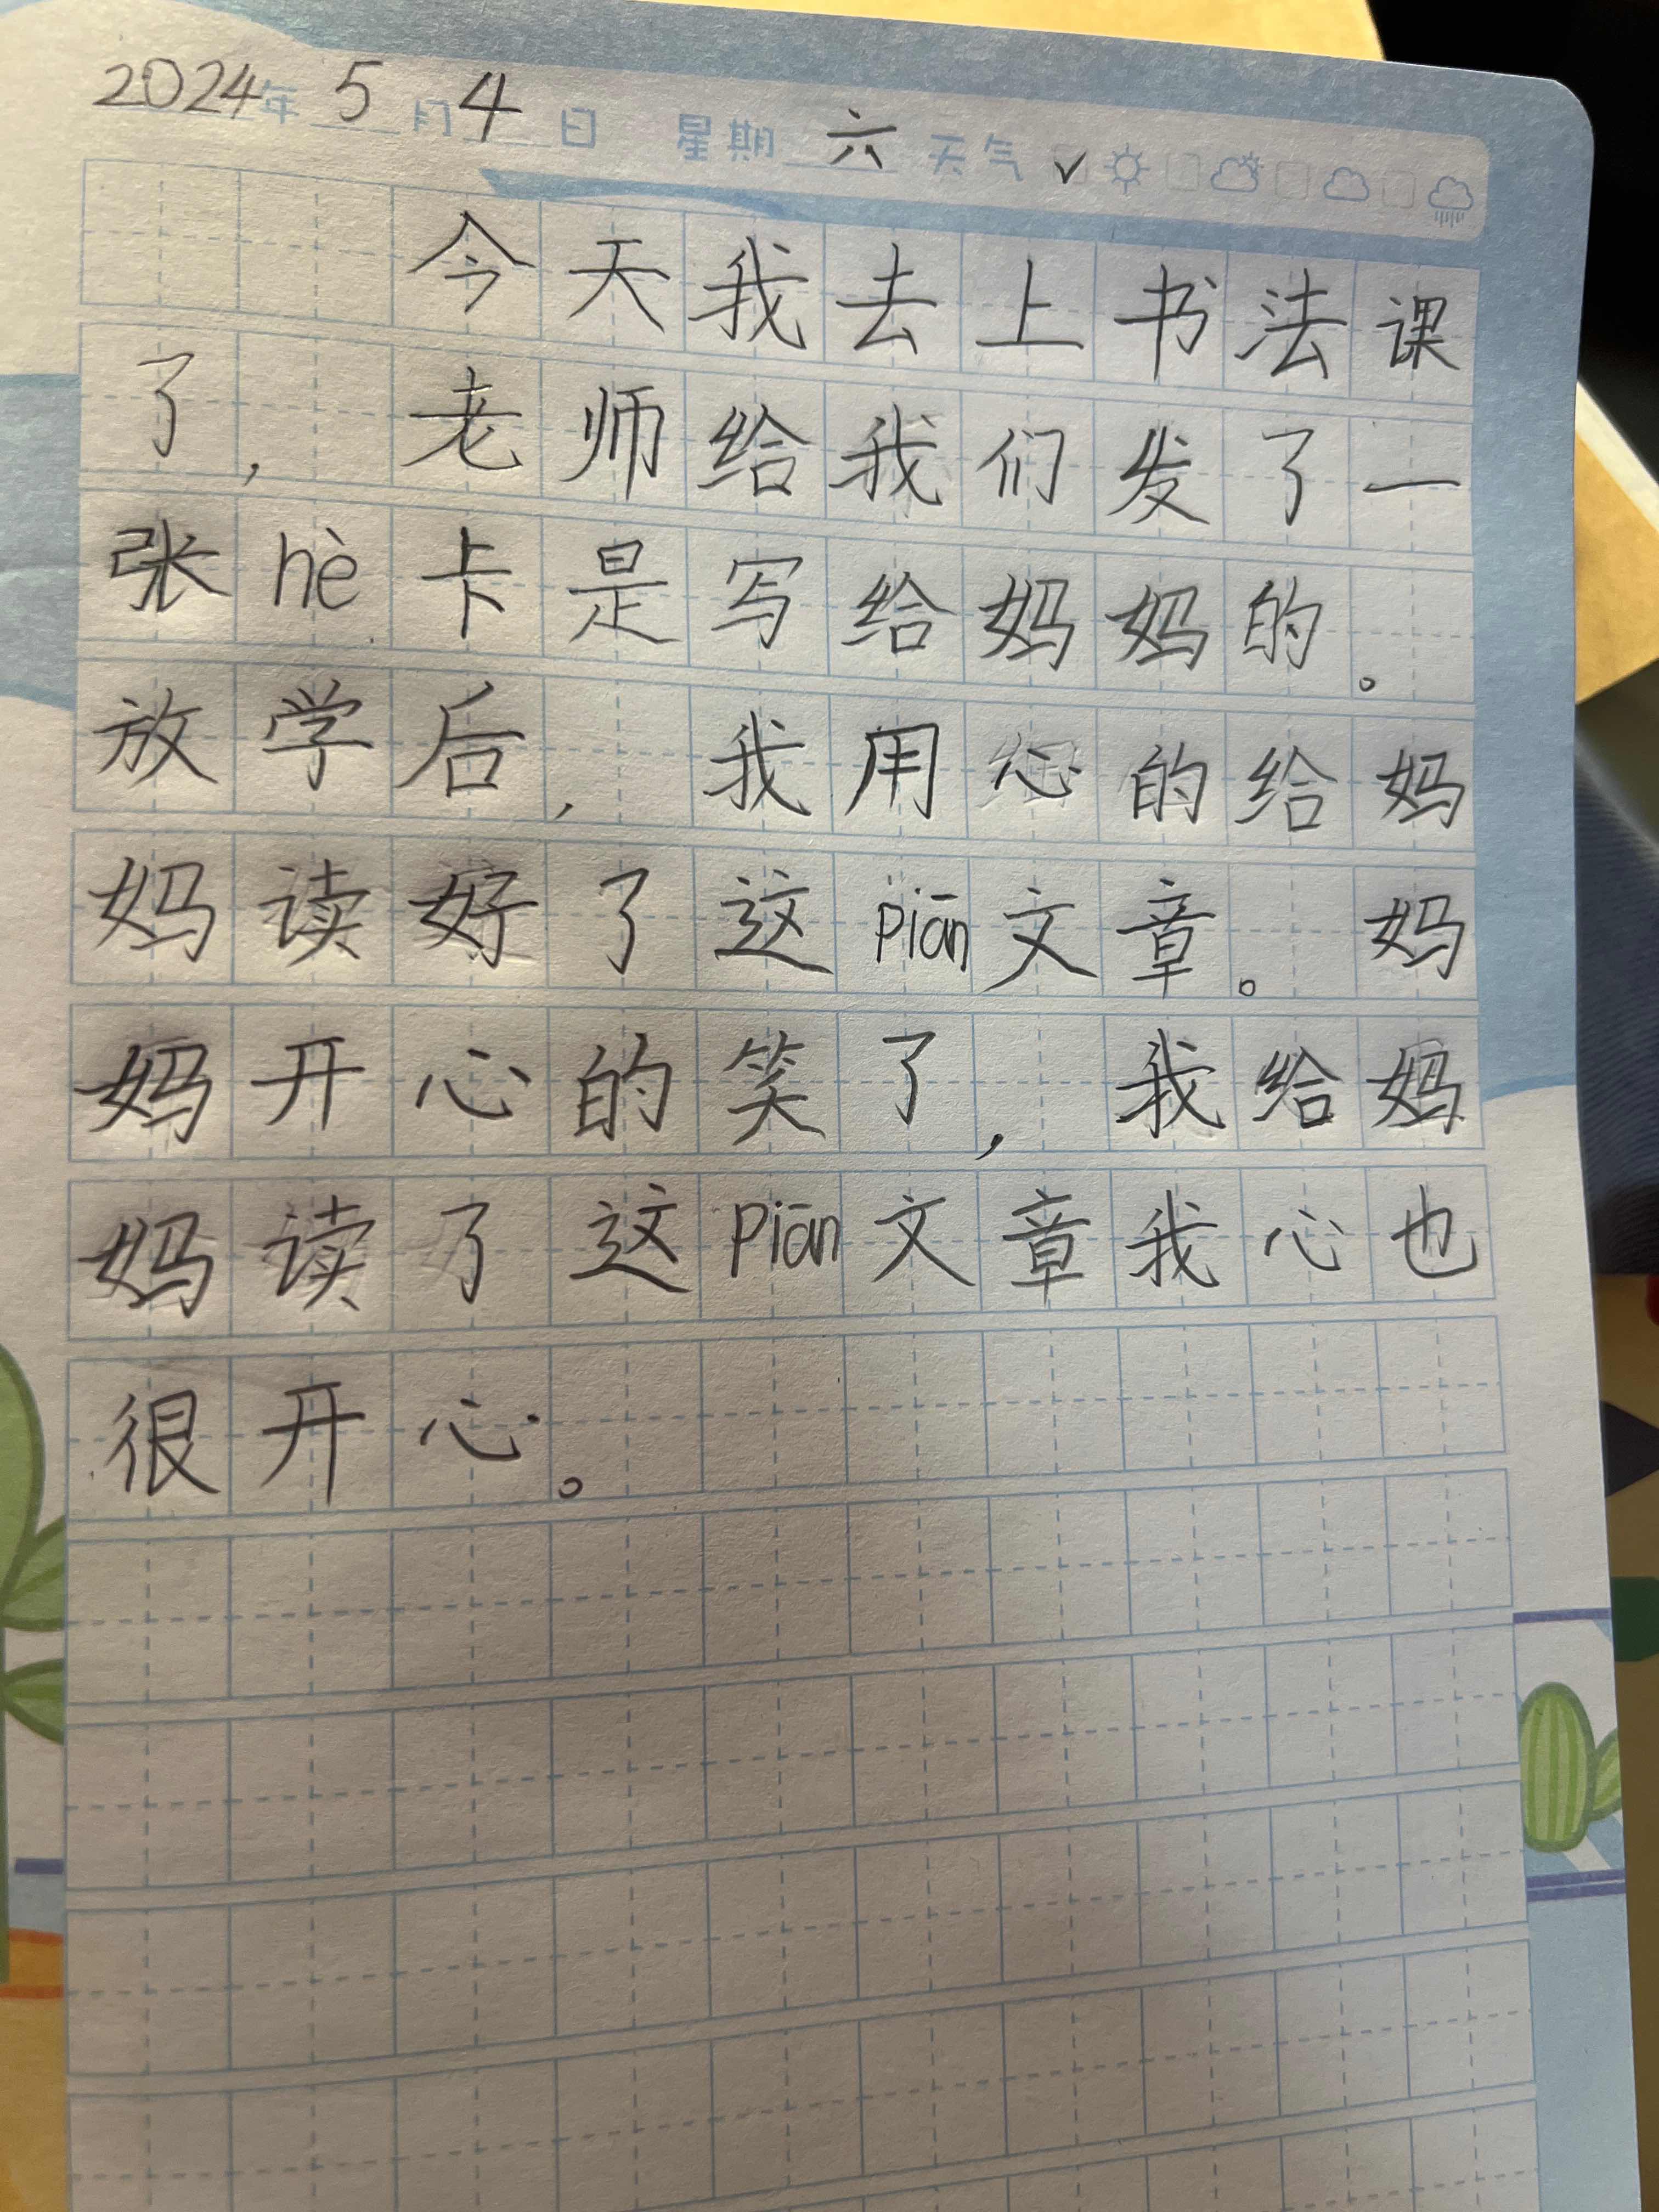 2024年 5月 4日 星期 六 天气 ✓
今天我去上书法课
了，老师给我们发了一
张hè卡是写给妈妈的。
放学后，我用心的给妈
妈读好了这piān文章。妈
妈开心的笑了，我给妈
妈读了这piān文章我心也
很开心。